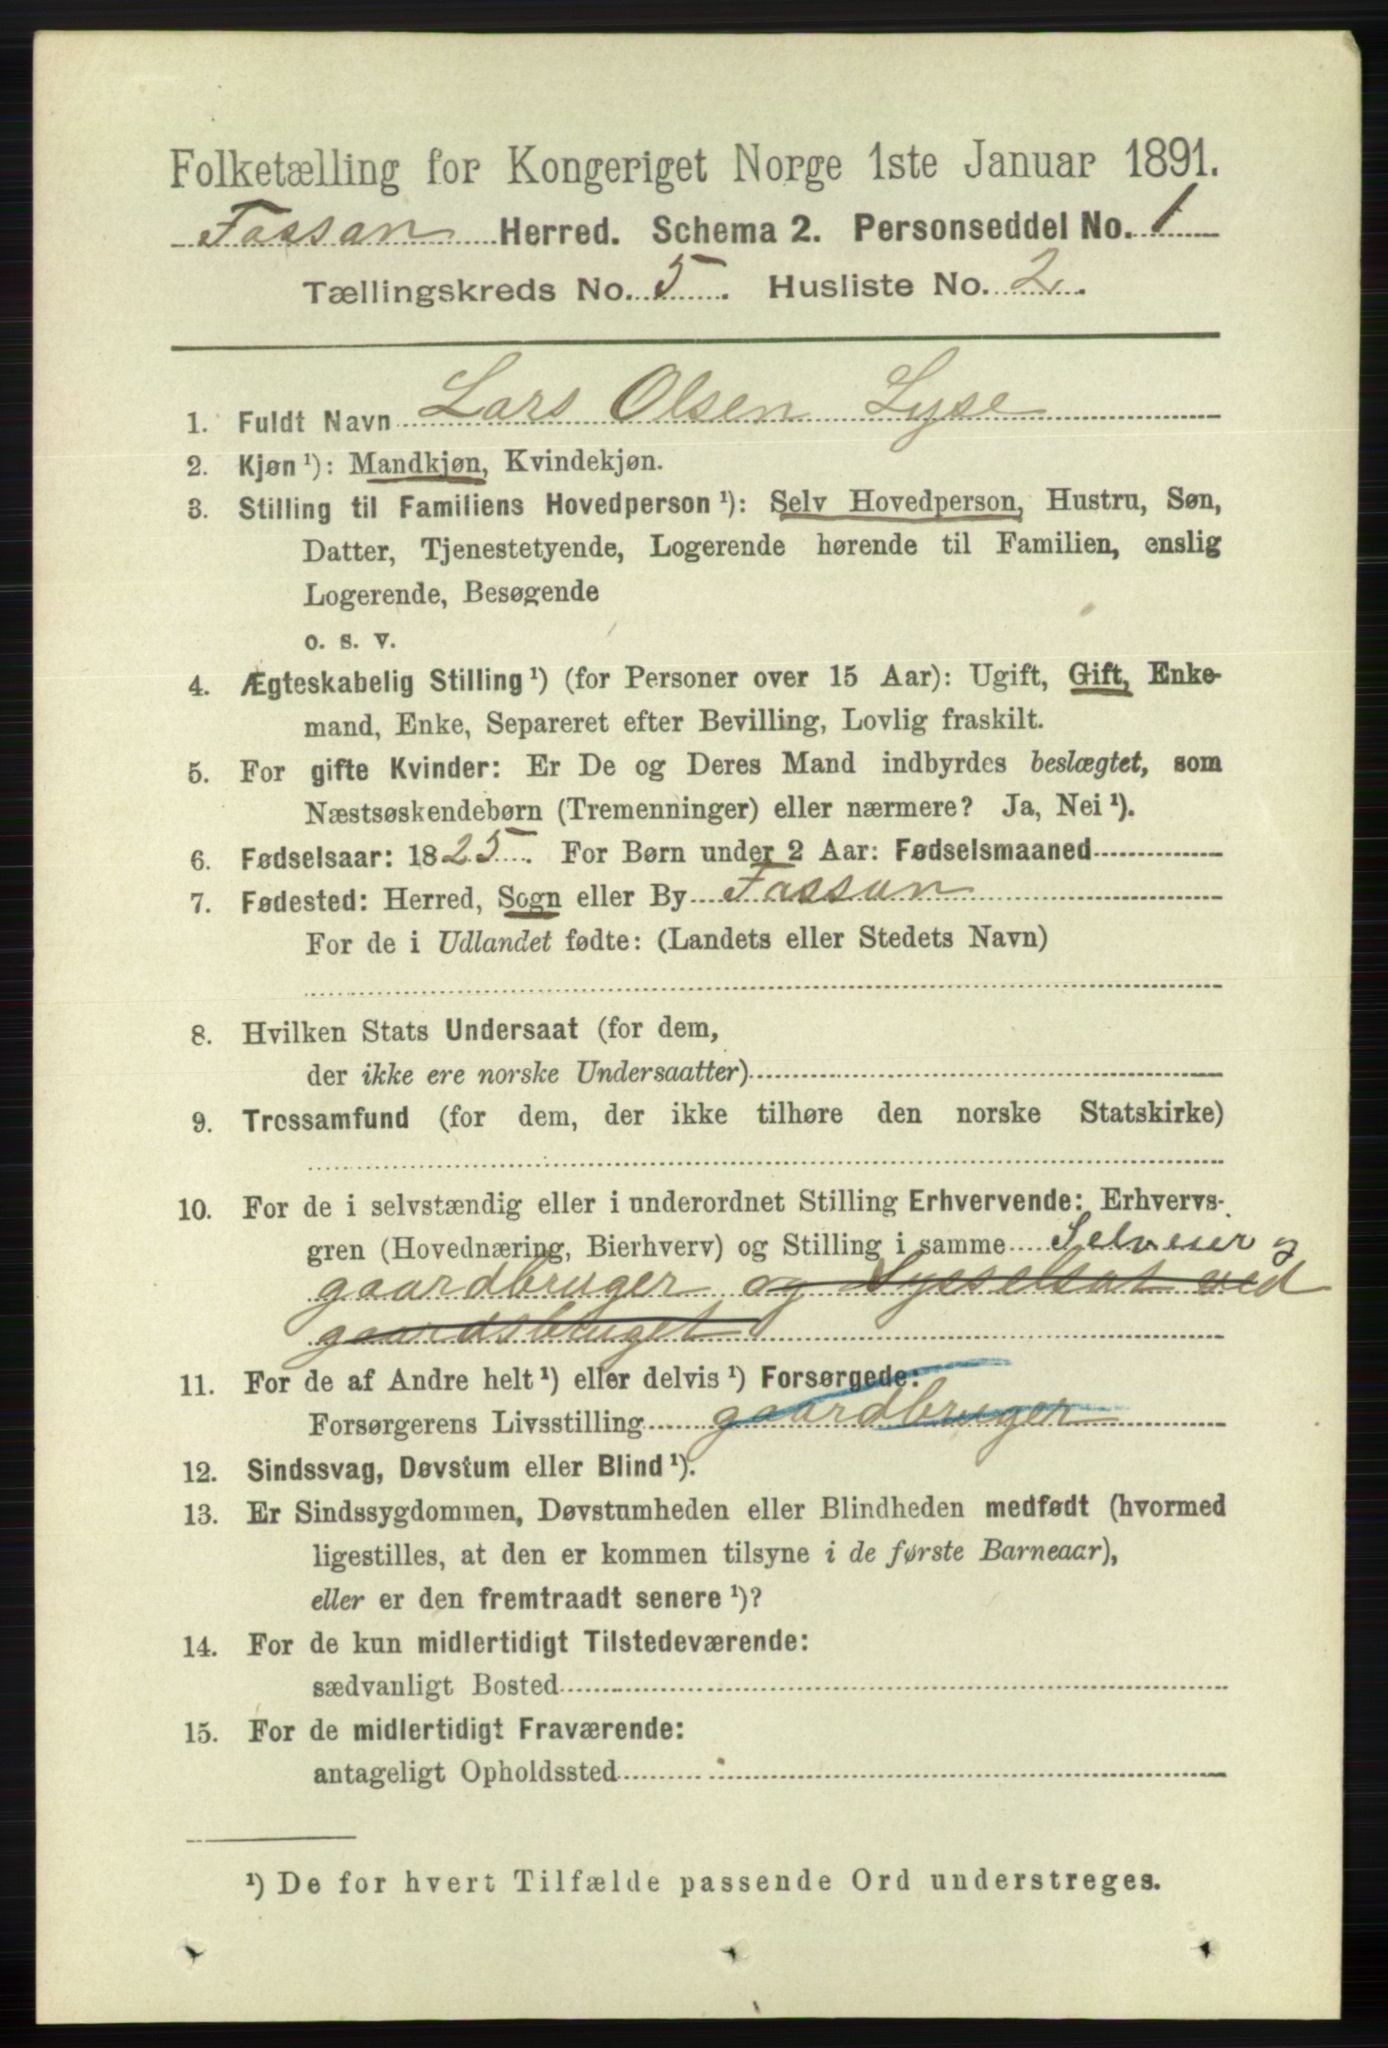 Folketælling for Kongeriget Norge 1ste Januar 1891.
Fossan Herred. Schema 2. Personseddel No. 1
Tællingskreds No. 5. Husliste No. 2.
1. Fuldt Navn Lars Olsen Lyse
2. Kjøn ¹): Mandkjøn, Kvindekjøn.
3. Stilling til Familiens Hovedperson ¹): Selv Hovedperson, Hustru, Søn,
Datter, Tjenestetyende, Logerende hørende til Familien, enslig
Logerende, Besøgende
o. s. v.
4. Ægteskabelig Stilling ¹) (for Personer over 15 Aar): Ugift, Gift, Enke-
mand, Enke, Separeret efter Bevilling, Lovlig fraskilt.
5. For gifte Kvinder: Er De og Deres Mand indbyrdes beslægtet, som
Næstsøskendebørn (Tremenninger) eller nærmere? Ja, Nei ¹).
6. Fødselsaar: 1825. For Børn under 2 Aar: Fødselsmaaned
7. Fødested: Herred, Sogn eller By Fossan
For de i Udlandet fødte: (Landets eller Stedets Navn)
8. Hvilken Stats Undersaat (for dem,
der ikke ere norske Undersaatter)
9. Trossamfund (for dem, der ikke tilhøre den norske Statskirke)
10. For de i selvstændig eller i underordnet Stilling Erhvervende: Erhvervs-
gren (Hovednæring, Bierhverv) og Stilling i samme Selveier og
gaardbruger og Sysselsat ved
gaardsbruget
11. For de af Andre helt ¹) eller delvis ¹) Forsørgede:
Forsørgerens Livsstilling gaardbruger
12. Sindssvag, Døvstum eller Blind ¹).
13. Er Sindssygdommen, Døvstumheden eller Blindheden medfødt (hvormed
ligestilles, at den er kommen tilsyne i de første Barneaar),
eller er den fremtraadt senere ¹)?
14. For de kun midlertidigt Tilstedeværende:
sædvanligt Bosted
15. For de midlertidigt Fraværende:
antageligt Opholdssted
¹) De for hvert Tilfælde passende Ord understreges.